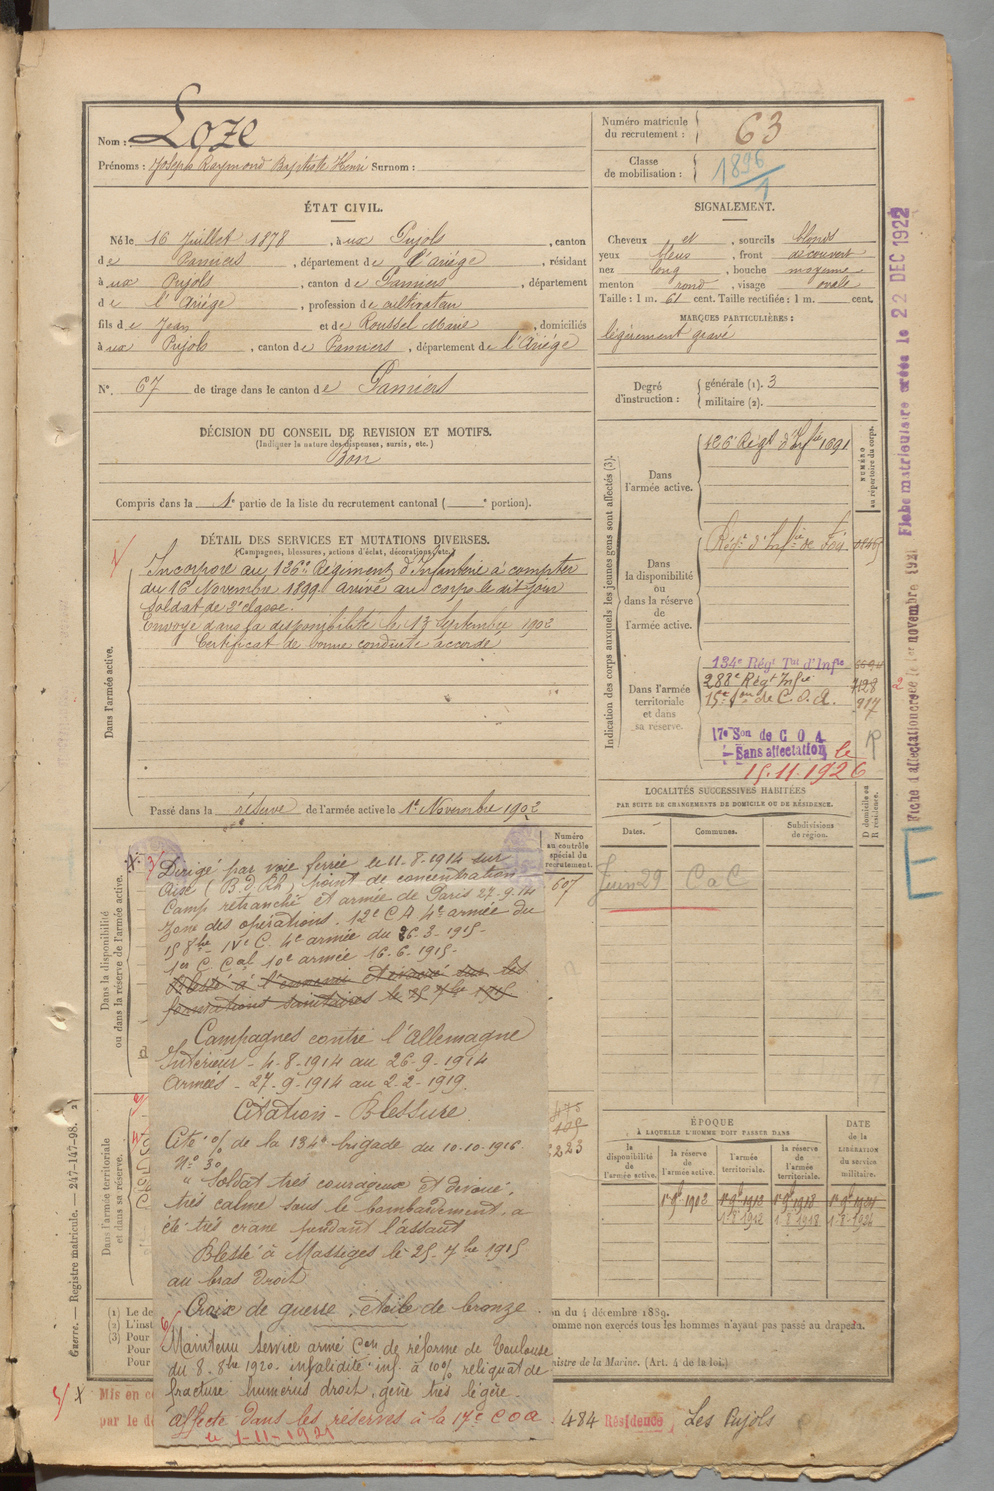 Nom : Loze
Prénoms : Joseph Raymond Baptiste Henri Surnom :
Numéro matricule du recrutement : 63
Classe de mobilisation : 1896
1
ÉTAT CIVIL.
Né le 16 Juillet 1878, à ux Pujols, canton
de Pamiers, département de l'ariège, résidant
à ux Pujols, canton de Pamiers, département
de l'Ariège, profession de cultivateur
fils de Jean et de Roussel Marie, domiciliés
à ux Pujols, canton de Pamiers, département de l'Ariège
N° 67 de tirage dans le canton de Pamiers
SIGNALEMENT.
Cheveux et, sourcils blonds
yeux bleus, front découvert
nez long, bouche moyenne
menton rond, visage ovale
Taille : 1 m. 61 cent. Taille rectifiée : 1 m. cent.
MARQUES PARTICULIÈRES :
légèrement gravé
Degré d'instruction :
générale (1). 3
militaire (2).
DÉCISION DU CONSEIL DE REVISION ET MOTIFS.
(Indiquer la nature des dispenses, sursis, etc.)
Bon
Compris dans la 1e partie de la liste du recrutement cantonal ( e portion).
DÉTAIL DES SERVICES ET MUTATIONS DIVERSES.
(Campagnes, blessures, actions d'éclat, décorations, etc.)
Dans l'armée active.
Incorporé au 126e Régiment d'Infanterie à compter
du 16 Novembre 1899 arrivé au corps le dit jour
soldat de 2e classe.
Envoyé dans la disponibilité le 13 Septembre 1902
Certificat de bonne conduite accordé
Passé dans la réserve de l'armée active le 1er Novembre 1902
Indication des corps auxquels les jeunes gens sont affectés (3).
NUMÉRO au répertoire du corps.
Dans l'armée active.
126e Régt d'Infie 1691
Dans la disponibilité ou dans la réserve de l'armée active.
Régt d'Infie de Foix
Dans l'armée territoriale et dans sa réserve.
134e Régt Tal d'Infie
288e Régt Infie
15e Son de C.O.A. 917
17e Son de C O A
Sans affectation le
15.11.1926
R
LOCALITÉS SUCCESSIVES HABITÉES
PAR SUITE DE CHANGEMENTS DE DOMICILE OU DE RÉSIDENCE.
Dates.
Communes.
Subdivisions de région.
D domicile ou R résidence.
Juin 29 CaC
Dans la disponibilité ou dans la réserve de l'armée active.
Numéro au contrôle spécial du recrutement.
607
3/ Dirigé par voie ferrée le 11.8.1914 sur
Oise (B.d.Rh) point de concentration
Camp retranché et armée de Paris 27-9-14
Zone des opérations. 12e CA 4e armée du
15 8bre IVe C. 4e armée du 26-3-1915-
1er C Cal 10e armée 16-6-1915-
Blessé à l'ennemi et évacué sur les
formations sanitaires le 25 7bre 1915
Campagnes contre l'Allemagne
Intérieur - 4-8-1914 au 26-9-1914
Armées - 27-9-1914 au 2-2-1919.
Citation - Blessure
Cité % de la 134e brigade du 10-10-1916
N° 30
" Soldat très courageux et dévoué,
très calme sous le bombardement, a
été très crane pendant l'assaut
Blessé à Massiges le 25 7bre 1915
au bras droit
Croix de guerre, étoile de bronze.
6/ Maintenu service armé Con de réforme de Toulouse
du 8-8bre 1920. invalidité inf. à 10% reliquat de
fracture humérus droit, gêne très légère.
affecté dans les réserves à la 17e COA
le 1-11-1921
484 Résidence Les Pujols
Dans l'armée territoriale et dans sa réserve.
223
ÉPOQUE
À LAQUELLE L'HOMME DOIT PASSER DANS
la disponibilité de l'armée active.
la réserve de l'armée active.
l'armée territoriale.
la réserve de l'armée territoriale.
DATE de la LIBÉRATION du service militaire.
1r 9bre 1902 1r 9bre 1912 1r 9bre 1918 1r 9bre 1924
1.8.1912 1.8.1918 1.8.1924
(1) Le de
(2) L'inst
(3) Pour
Pour
Pour
on du 4 décembre 1889.
omme non exercés tous les hommes n'ayant pas passé au drapeau.
nistre de la Marine. (Art. 4 de la loi.)
5/ X Mis en c
par le d
Guerre. — Registre matricule. — 247-147-98.
Fiche matriculaire créée le 22 DEC 1922
Fiche d'affectation créée le 1er novembre 1921
E